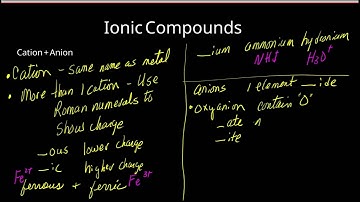 Ionic Compounds
Cation + Anion
• Cation - same name as metal
• More than 1 cation - Use
Roman numerals to
Show charge
_ous lower charge
_ic higher charge
Fe2+ ferrous + ferric Fe3+
_ium ammonium hydronium
NH4+ H3O+
anions 1 element _ide
• Oxyanion contain "O"
_ate
_ite